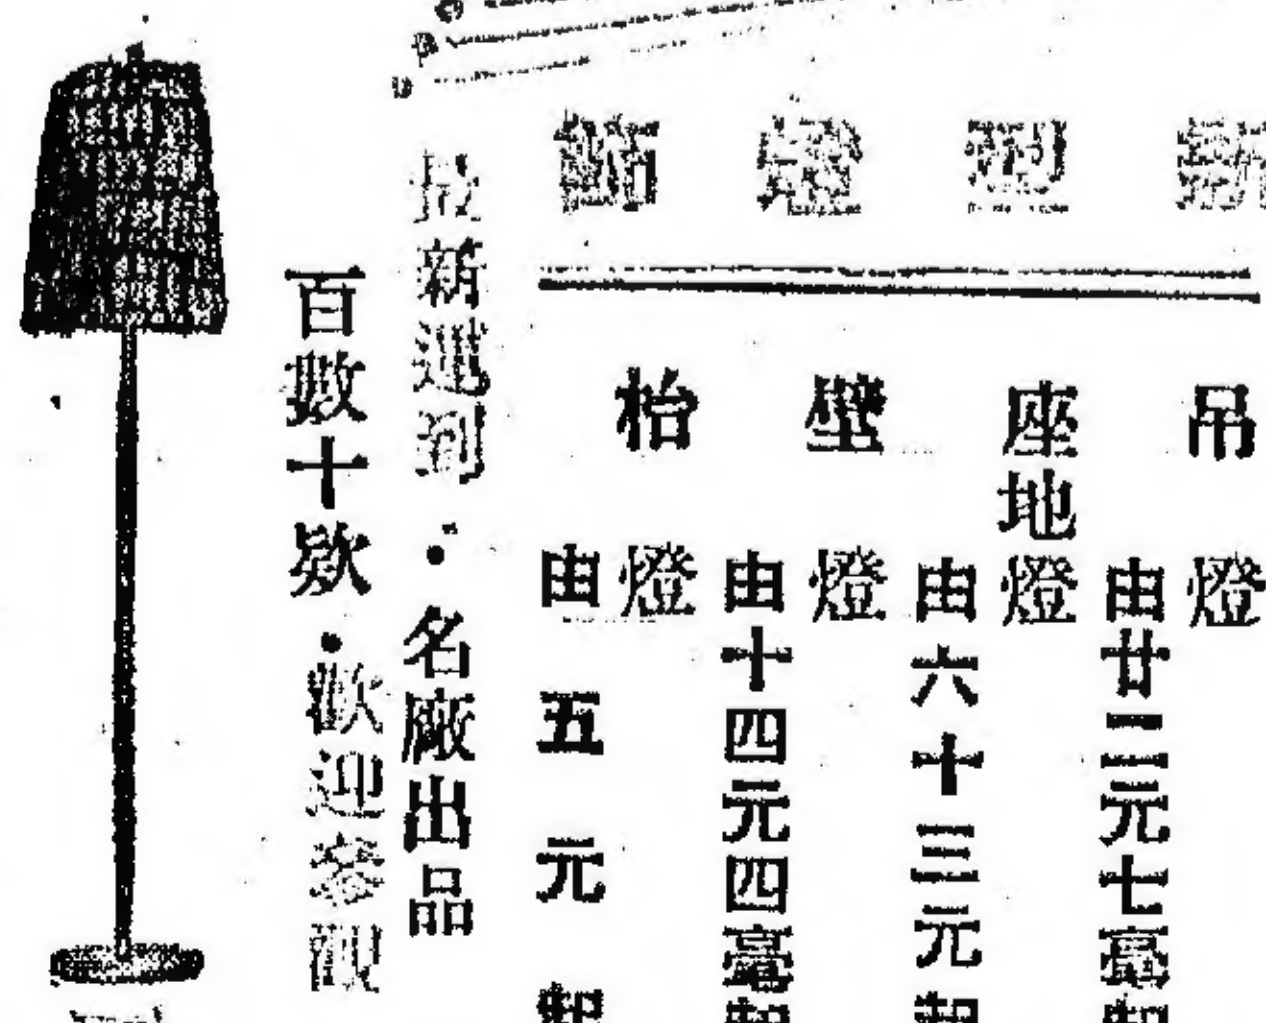 新型燈飾
吊燈
由廿三元七毫起
座地燈
由六十三元起
壁燈
由十四元四毫起
枱燈
由五元起
最新運到・名廠出品
百數十欵・歡迎參觀